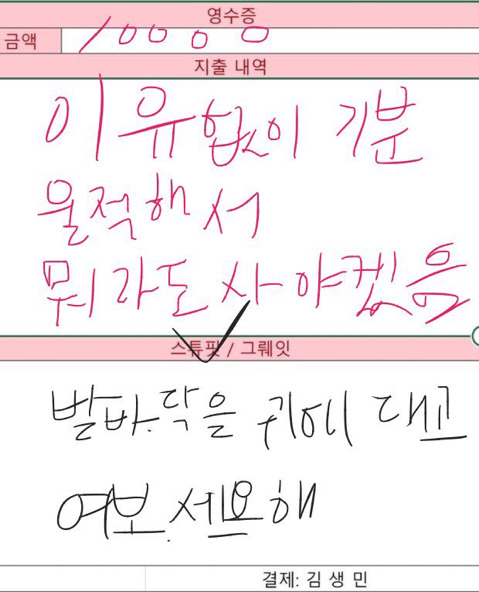 영수증
금액 10000
지출 내역
이유없이 기분
울적해서
뭐라도 사야겠음
스튜핏 / 그뤠잇
발바닥을 귀에 대고
여보세요해
결제: 김 생 민